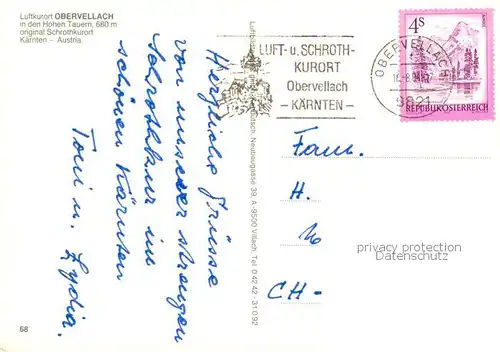 Luftkurort OBERVELLACH
in den Hohen Tauern, 680 m
original Schrothkurort
Kärnten - Austria
Herzliche Grüsse
von unserer strengen
Schrothkur im
schönen Kärnten
Toni u. Lydia.
68
Neubaugasse 39, A-9500 Villach, Tel. 0 42 42 - 31 0 92
LUFT- u. SCHROTH-
KURORT
Obervellach
- KÄRNTEN -
OBERVELLACH
9821
4 S
REPUBLIK ÖSTERREICH
Fam.
H.
CH-
privacy protection
Datenschutz